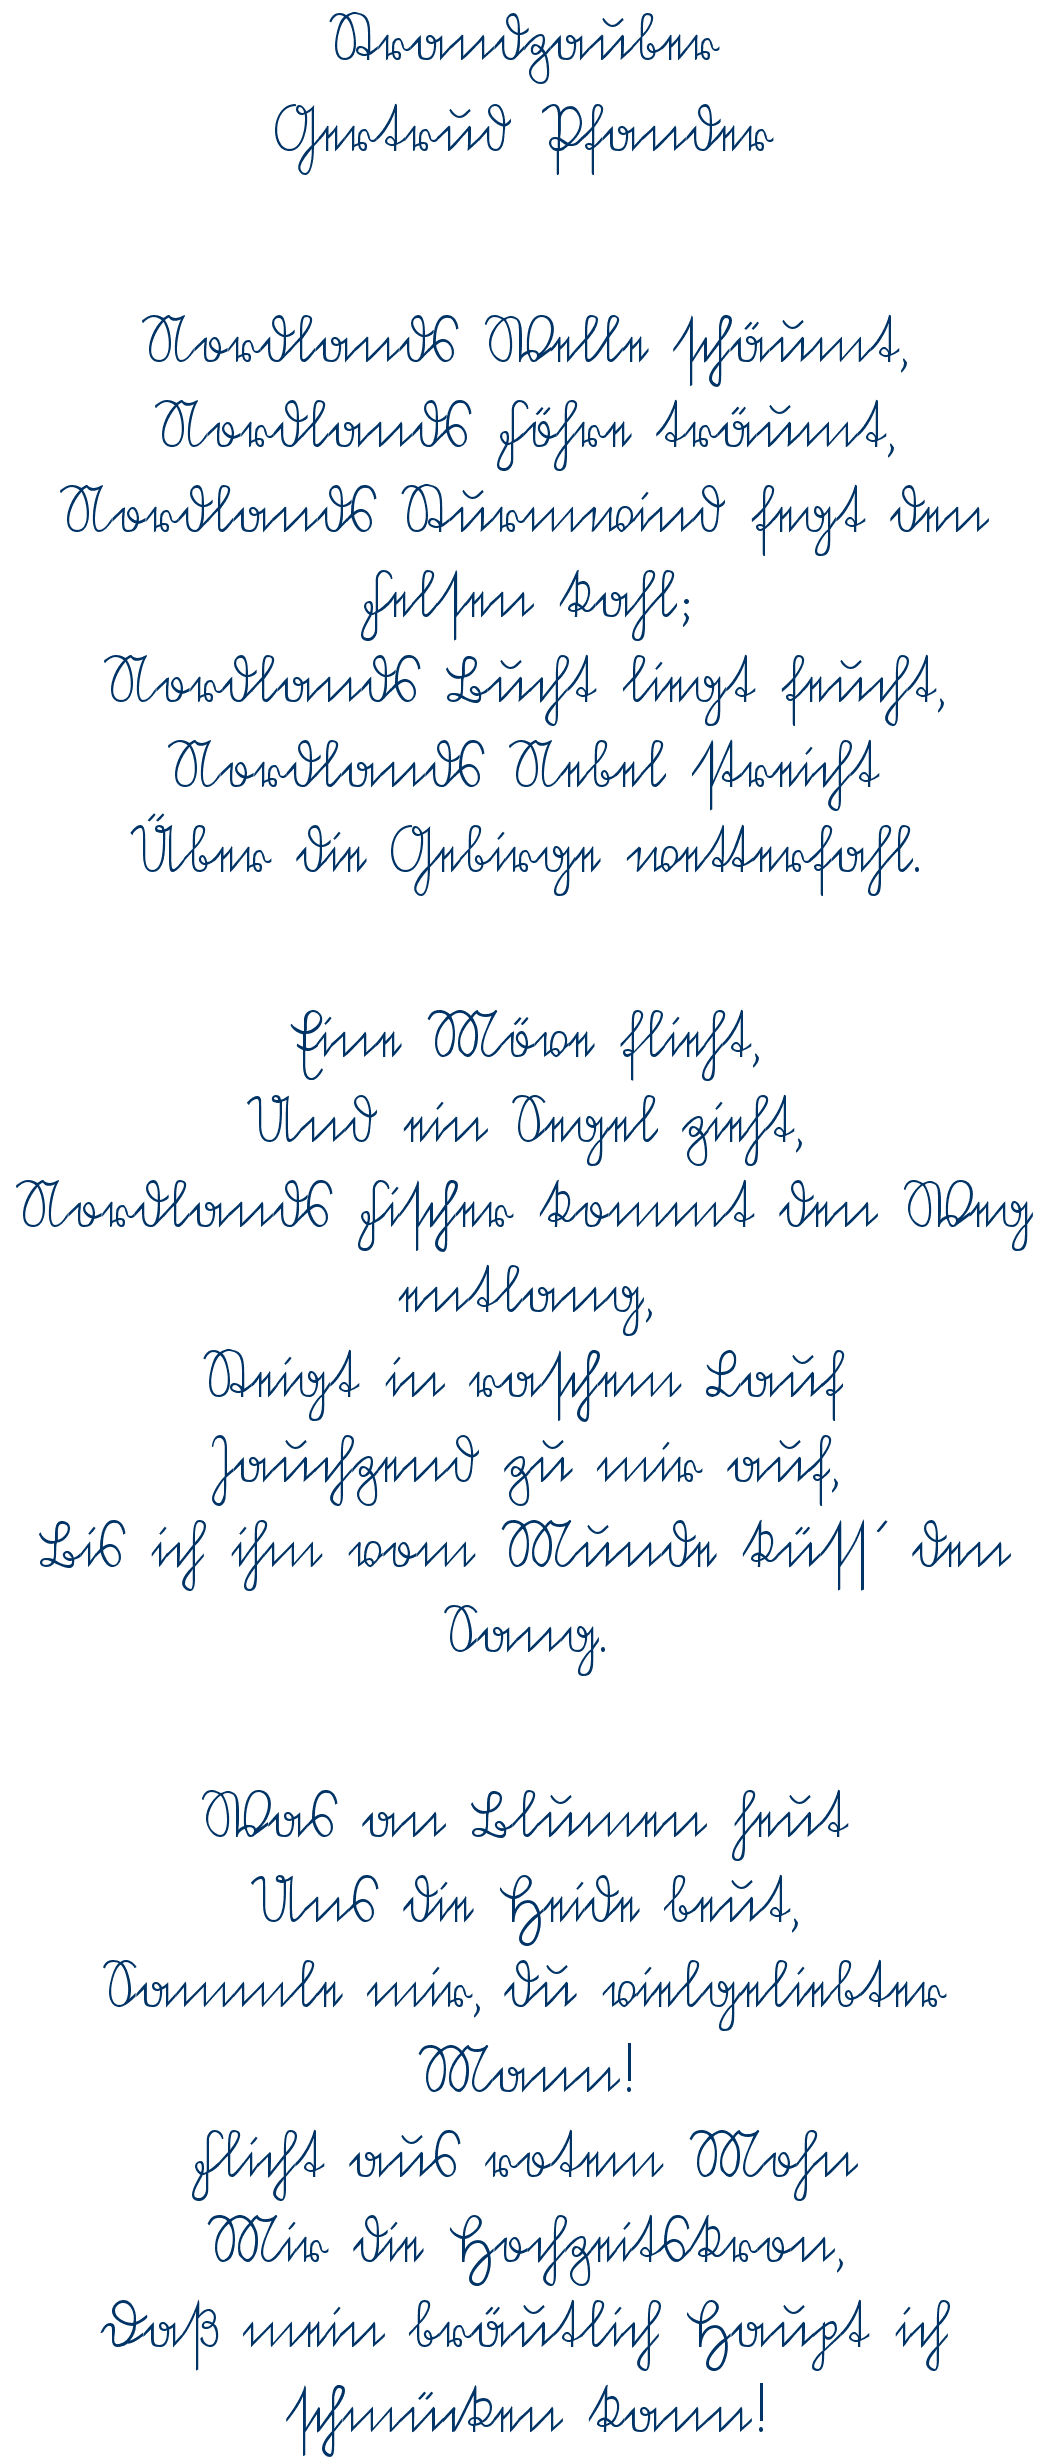 Strandzauber
Gertrud Pfander
Nordlands Welle schäumt,
Nordlands Föhre träumt,
Nordlands Sturmwind fegt den
Felsen kahl;
Nordlands Bucht liegt feucht,
Nordlands Nebel streicht
Über die Gebirge wetterfahl.
Eine Möve flieht,
Und ein Segel zieht,
Nordlands Fischer kommt den Weg
entlang,
Steigt in raschem Lauf
Jauchzend zu mir auf,
Bis ich ihm vom Munde küss´ den
Sang.
Was an Blumen heut
Uns die Heide beut,
Sammle mir, du vielgeliebter
Mann!
Flicht aus rotem Mohn
Mir die Hochzeitskron,
Daß mein bräutlich Haupt ich
schmücken kann!